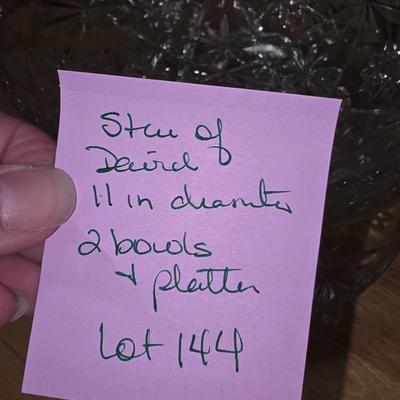 Star of
David
11 in diameter
2 bowls
+ platter
Lot 144